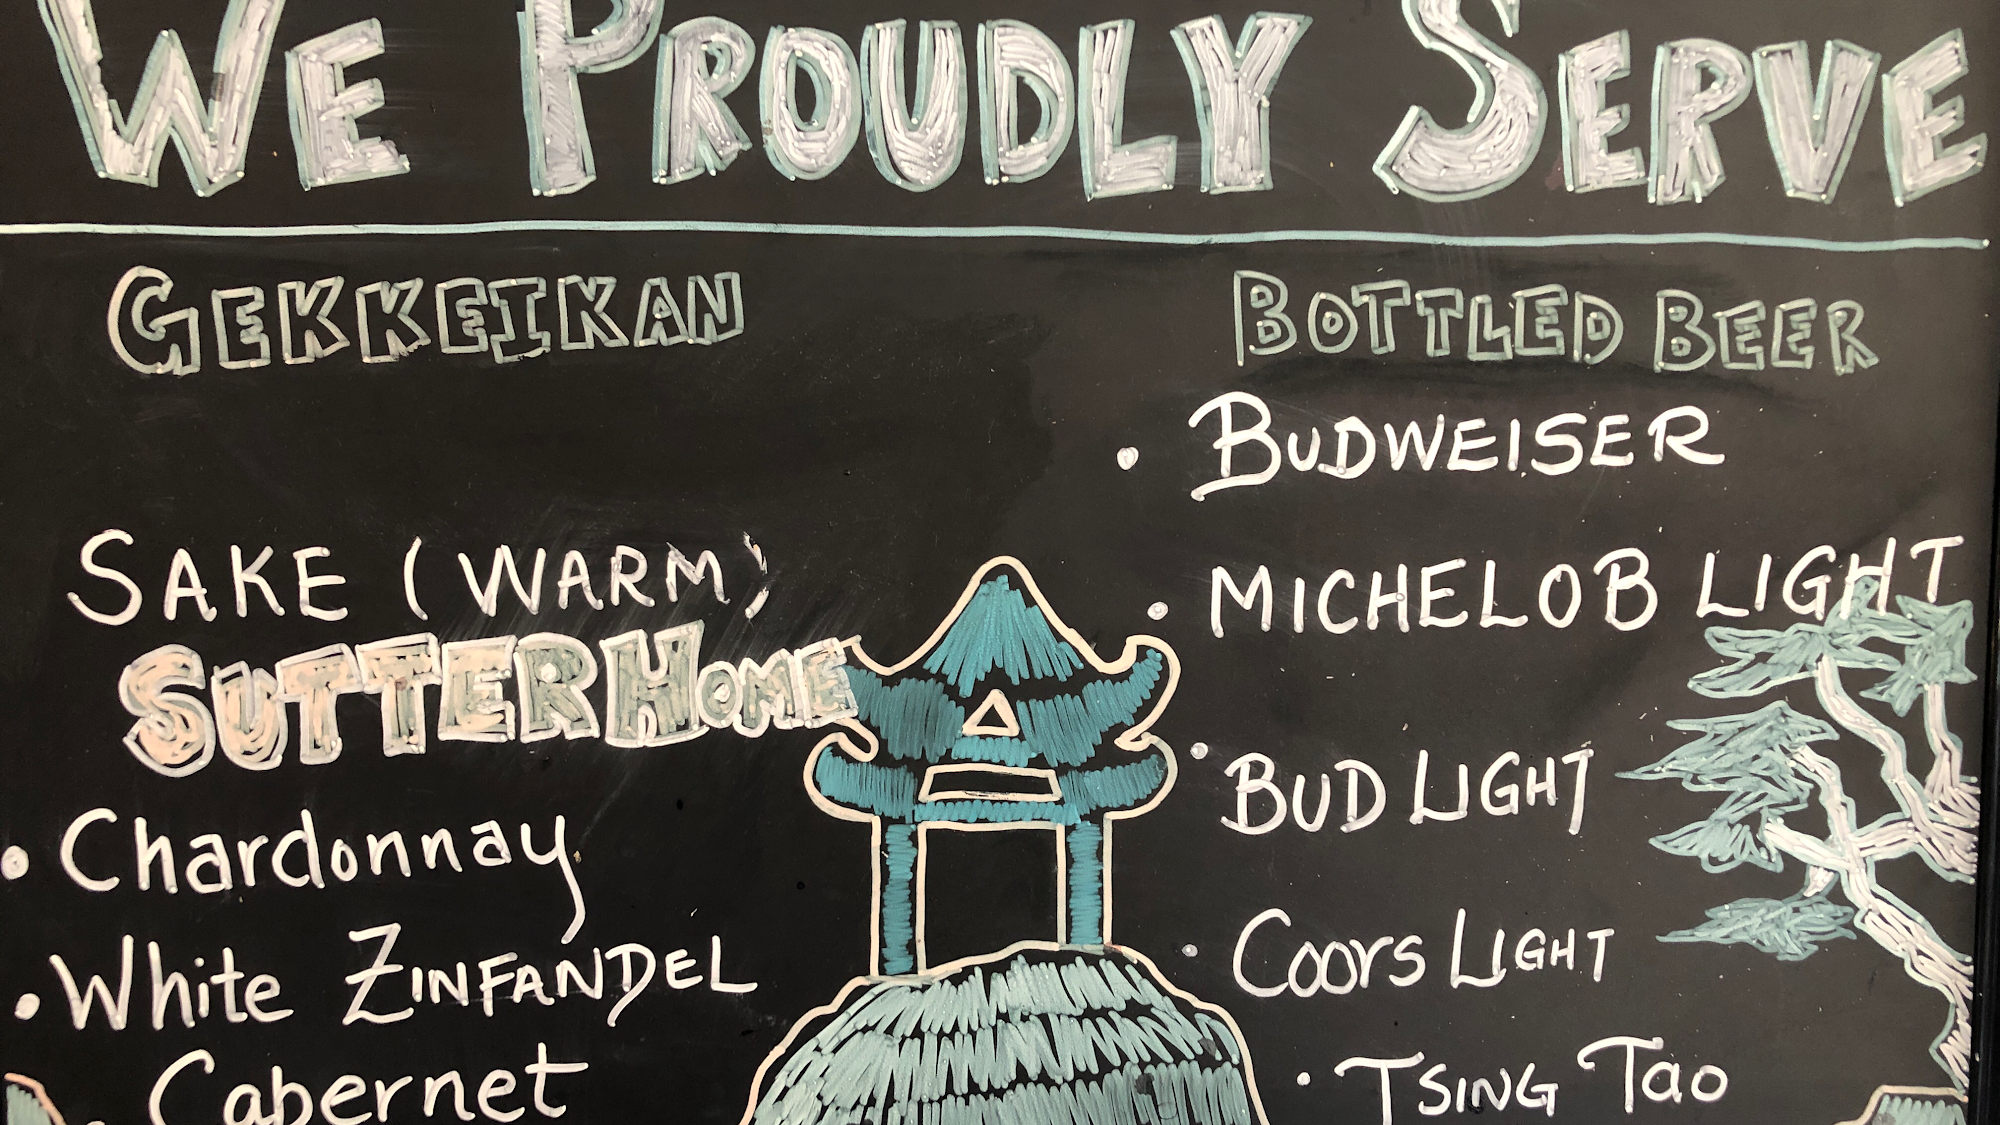 WE PROUDLY SERVE
GEKKEIKAN
SAKE (WARM)
SUTTER HOME
• Chardonnay
• White ZINFANDEL
• Cabernet
BOTTLED BEER
• BUDWEISER
• MICHELOB LIGHT
• BUD LIGHT
• Coors LIGHT
• TSING TAO